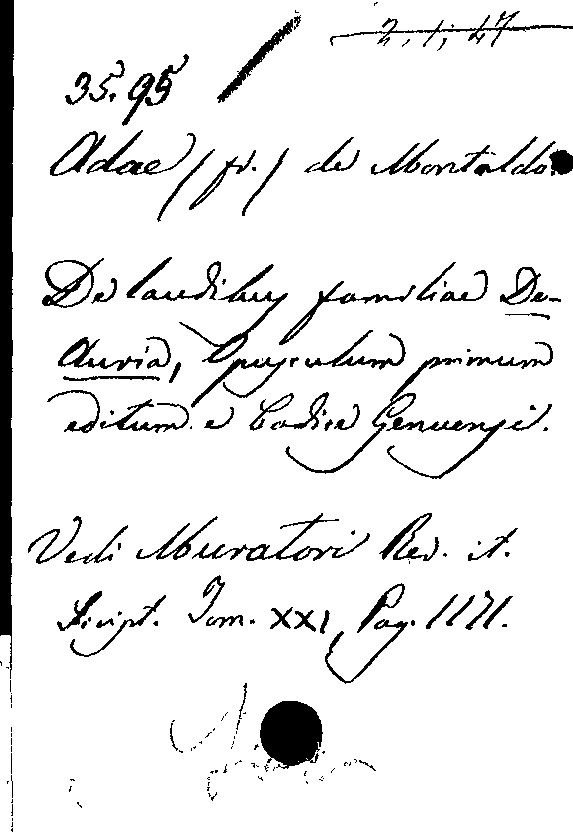 2, 1, 47
35.95
Adae / fr. / de Montaldo.
De laudibus familiae De-
Auria, Opusculum primum
editum e Codice Genuensi.
Vedi Muratori Rer. it.
Script. Tom. XXI, Pag. 1171.